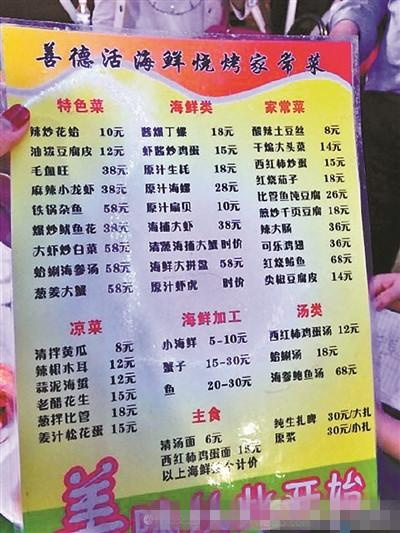 善德活海鲜烧烤家常菜
特色菜
辣炒花蛤 10元
油泼豆腐皮 12元
毛血旺 38元
麻辣小龙虾 38元
铁锅杂鱼 58元
爆炒鱿鱼花 38元
大虾炒白菜 58元
蛤蜊海参汤 58元
葱姜大蟹 58元
海鲜类
酱爆丁螺 18元
虾酱炒鸡蛋 15元
原汁生蚝 18元
原汁海螺 28元
原汁扇贝 10元
海捕大虾 38元
清蒸海捕大蟹 时价
海鲜大拼盘 58元
原汁虾虎 时价
家常菜
酸辣土豆丝 8元
干煸大头菜 14元
西红柿炒蛋 15元
红烧茄子 18元
比管鱼炖豆腐 26元
煎炒千页豆腐 18元
辣大肠 36元
可乐鸡翅 36元
红烧鲅鱼 68元
尖椒豆腐皮 14元
凉菜
清拌黄瓜 8元
辣椒木耳 12元
蒜泥海蜇 12元
老醋花生 15元
葱拌比管 18元
姜汁松花蛋 15元
海鲜加工
小海鲜 5-10元
蟹子 15-30元
鱼 20-30元
汤类
西红柿鸡蛋汤 12元
蛤蜊汤 18元
海参鲍鱼汤 68元
主食
清汤面 6元
西红柿鸡蛋面 15元
以上海鲜 个计价
纯生扎啤 30元/大扎
原浆 30元/小扎
美味从此开始